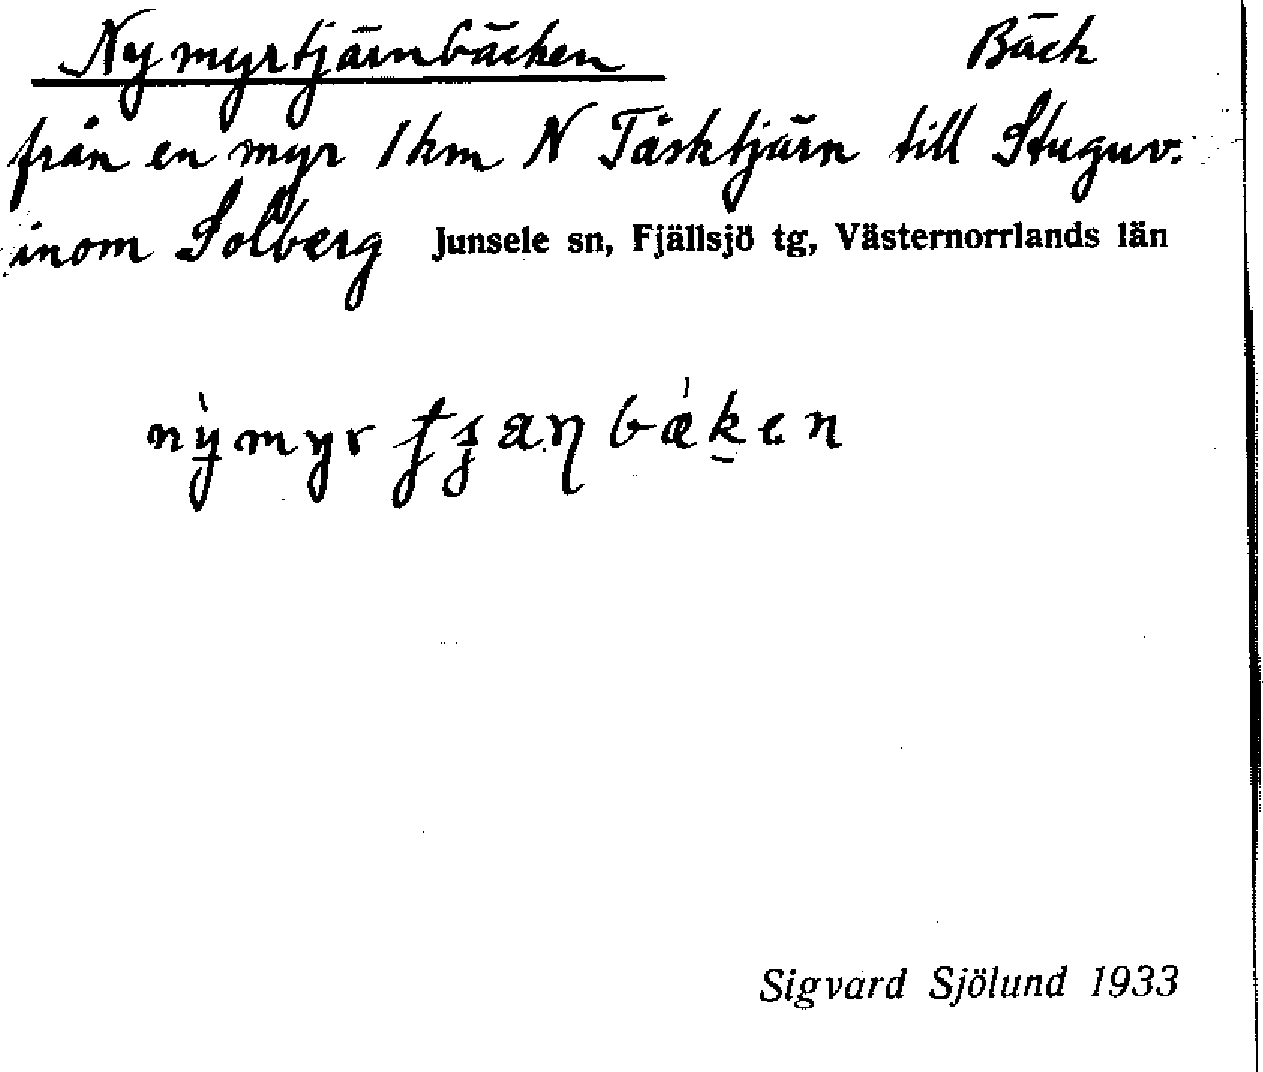 Nymyrtjärnbäcken Bäck
från en myr 1 km N Täsktjärn till Stuguv.
inom Solberg Junsele sn, Fjällsjö tg, Västernorrlands län
Sigvard Sjölund 1933